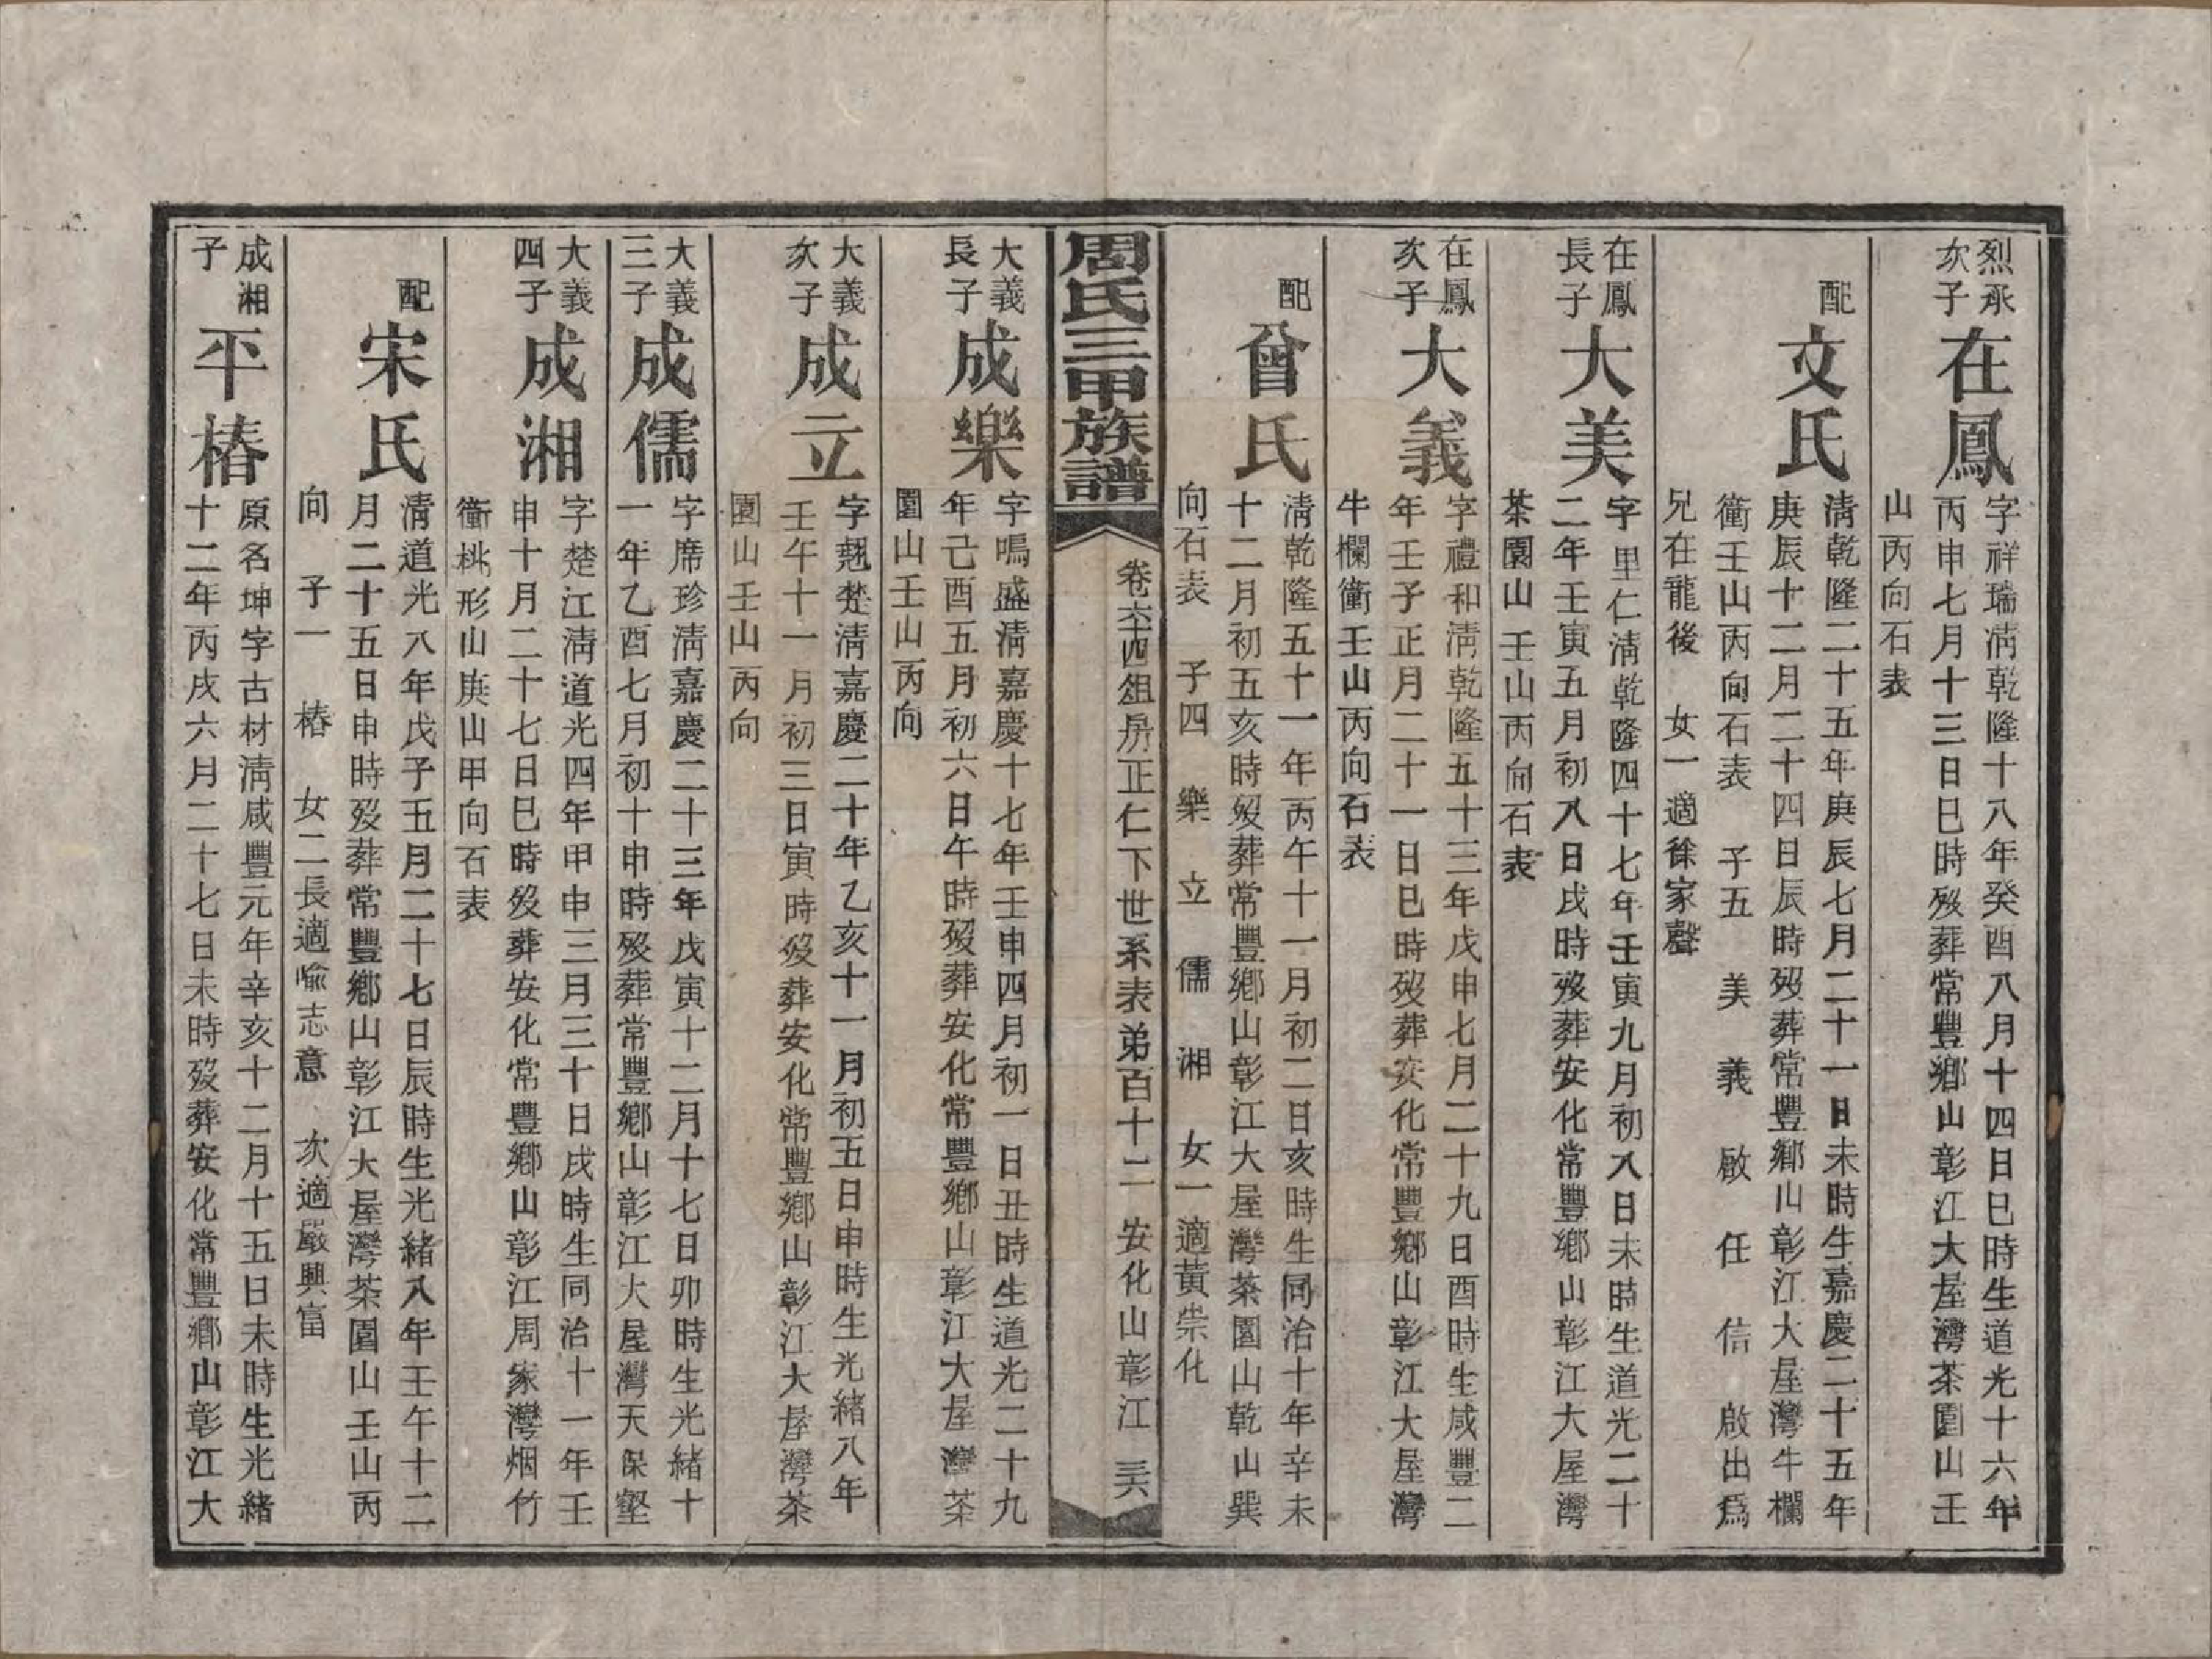 烈承
次子
在鳳
字祥瑞淸乾隆十八年癸酉八月十四日巳時生道光十六年
丙申七月十三日巳時歿葬常豐鄉山彰江大屋灣茶園山壬
山丙向石表
配
文氏
淸乾隆二十五年庚辰七月二十一日未時生嘉慶二十五年
庚辰十二月二十四日辰時歿葬常豐鄉山彰江大屋灣牛欄
衝壬山丙向石表 子五 美 義 啟 任 信 啟出爲
兄在龍後 女一適徐家聲
在鳳
長子
大美
字里仁淸乾隆四十七年壬寅九月初八日未時生道光二十
二年壬寅五月初八日戌時歿葬安化常豐鄉山彰江大屋灣
茶園山壬山丙向石表
在鳳
次子
大義
字禮和淸乾隆五十三年戊申七月二十九日酉時生咸豐二
年壬子正月二十一日巳時歿葬安化常豐鄉山彰江大屋灣
牛欄衝壬山丙向石表
配
曾氏
淸乾隆五十一年丙午十一月初二日亥時生同治十年辛未
十二月初五亥時歿葬常豐鄉山彰江大屋灣茶園山乾山巽
向石表 子四 樂 立 儒 湘 女一適黃崇化
周氏三甲族譜
卷六十四俎房正仁下世系表弟百十二 安化山彰江 三六
大義
長子
成樂
字鳴盛淸嘉慶十七年壬申四月初一日丑時生道光二十九
年己酉五月初六日午時歿葬安化常豐鄉山彰江大屋灣茶
園山壬山丙向
大義
次子
成立
字翹楚淸嘉慶二十年乙亥十一月初五日申時生光緒八年
壬午十一月初三日寅時歿葬安化常豐鄉山彰江大屋灣茶
園山壬山丙向
大義
三子
成儒
字席珍淸嘉慶二十三年戊寅十二月十七日卯時生光緒十
一年乙酉七月初十申時歿葬常豐鄉山彰江大屋灣天保壑
大義
四子
成湘
字楚江淸道光四年甲申三月三十日戌時生同治十一年壬
申十月二十七日巳時歿葬安化常豐鄉山彰江周家灣烟竹
衝桃形山庚山甲向石表
配
宋氏
淸道光八年戊子五月二十七日辰時生光緒八年壬午十二
月二十五日申時歿葬常豐鄉山彰江大屋灣茶園山壬山丙
向 子一 椿 女二長適喻志意 次適嚴興富
成湘
子
平椿
原名坤字古材淸咸豐元年辛亥十二月十五日未時生光緒
十二年丙戌六月二十七日未時歿葬安化常豐鄉山彰江大